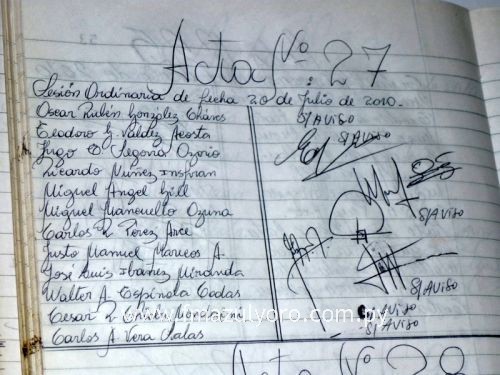 Acta Nº: 27
Sesión Ordinaria de fecha 20 de Julio de 2010.
Oscar Rubén González Cháves S/AVISO
Teodoro G. Valdez Acosta S/AVISO
Hugo O. Segovia Ozorio
Ricardo Nuñez Insfran
Miguel Angel Gill
Miguel Mancuello Ozuna
Carlos R. Pérez Arce S/AVISO
Justo Manuel Mareco A.
José Luis Ibañez Miranda
Walter A. Espínola Codas S/AVISO
Cesar S/AVISO
Carlos A. Vera Salas S/AVISO
Acta Nº 28